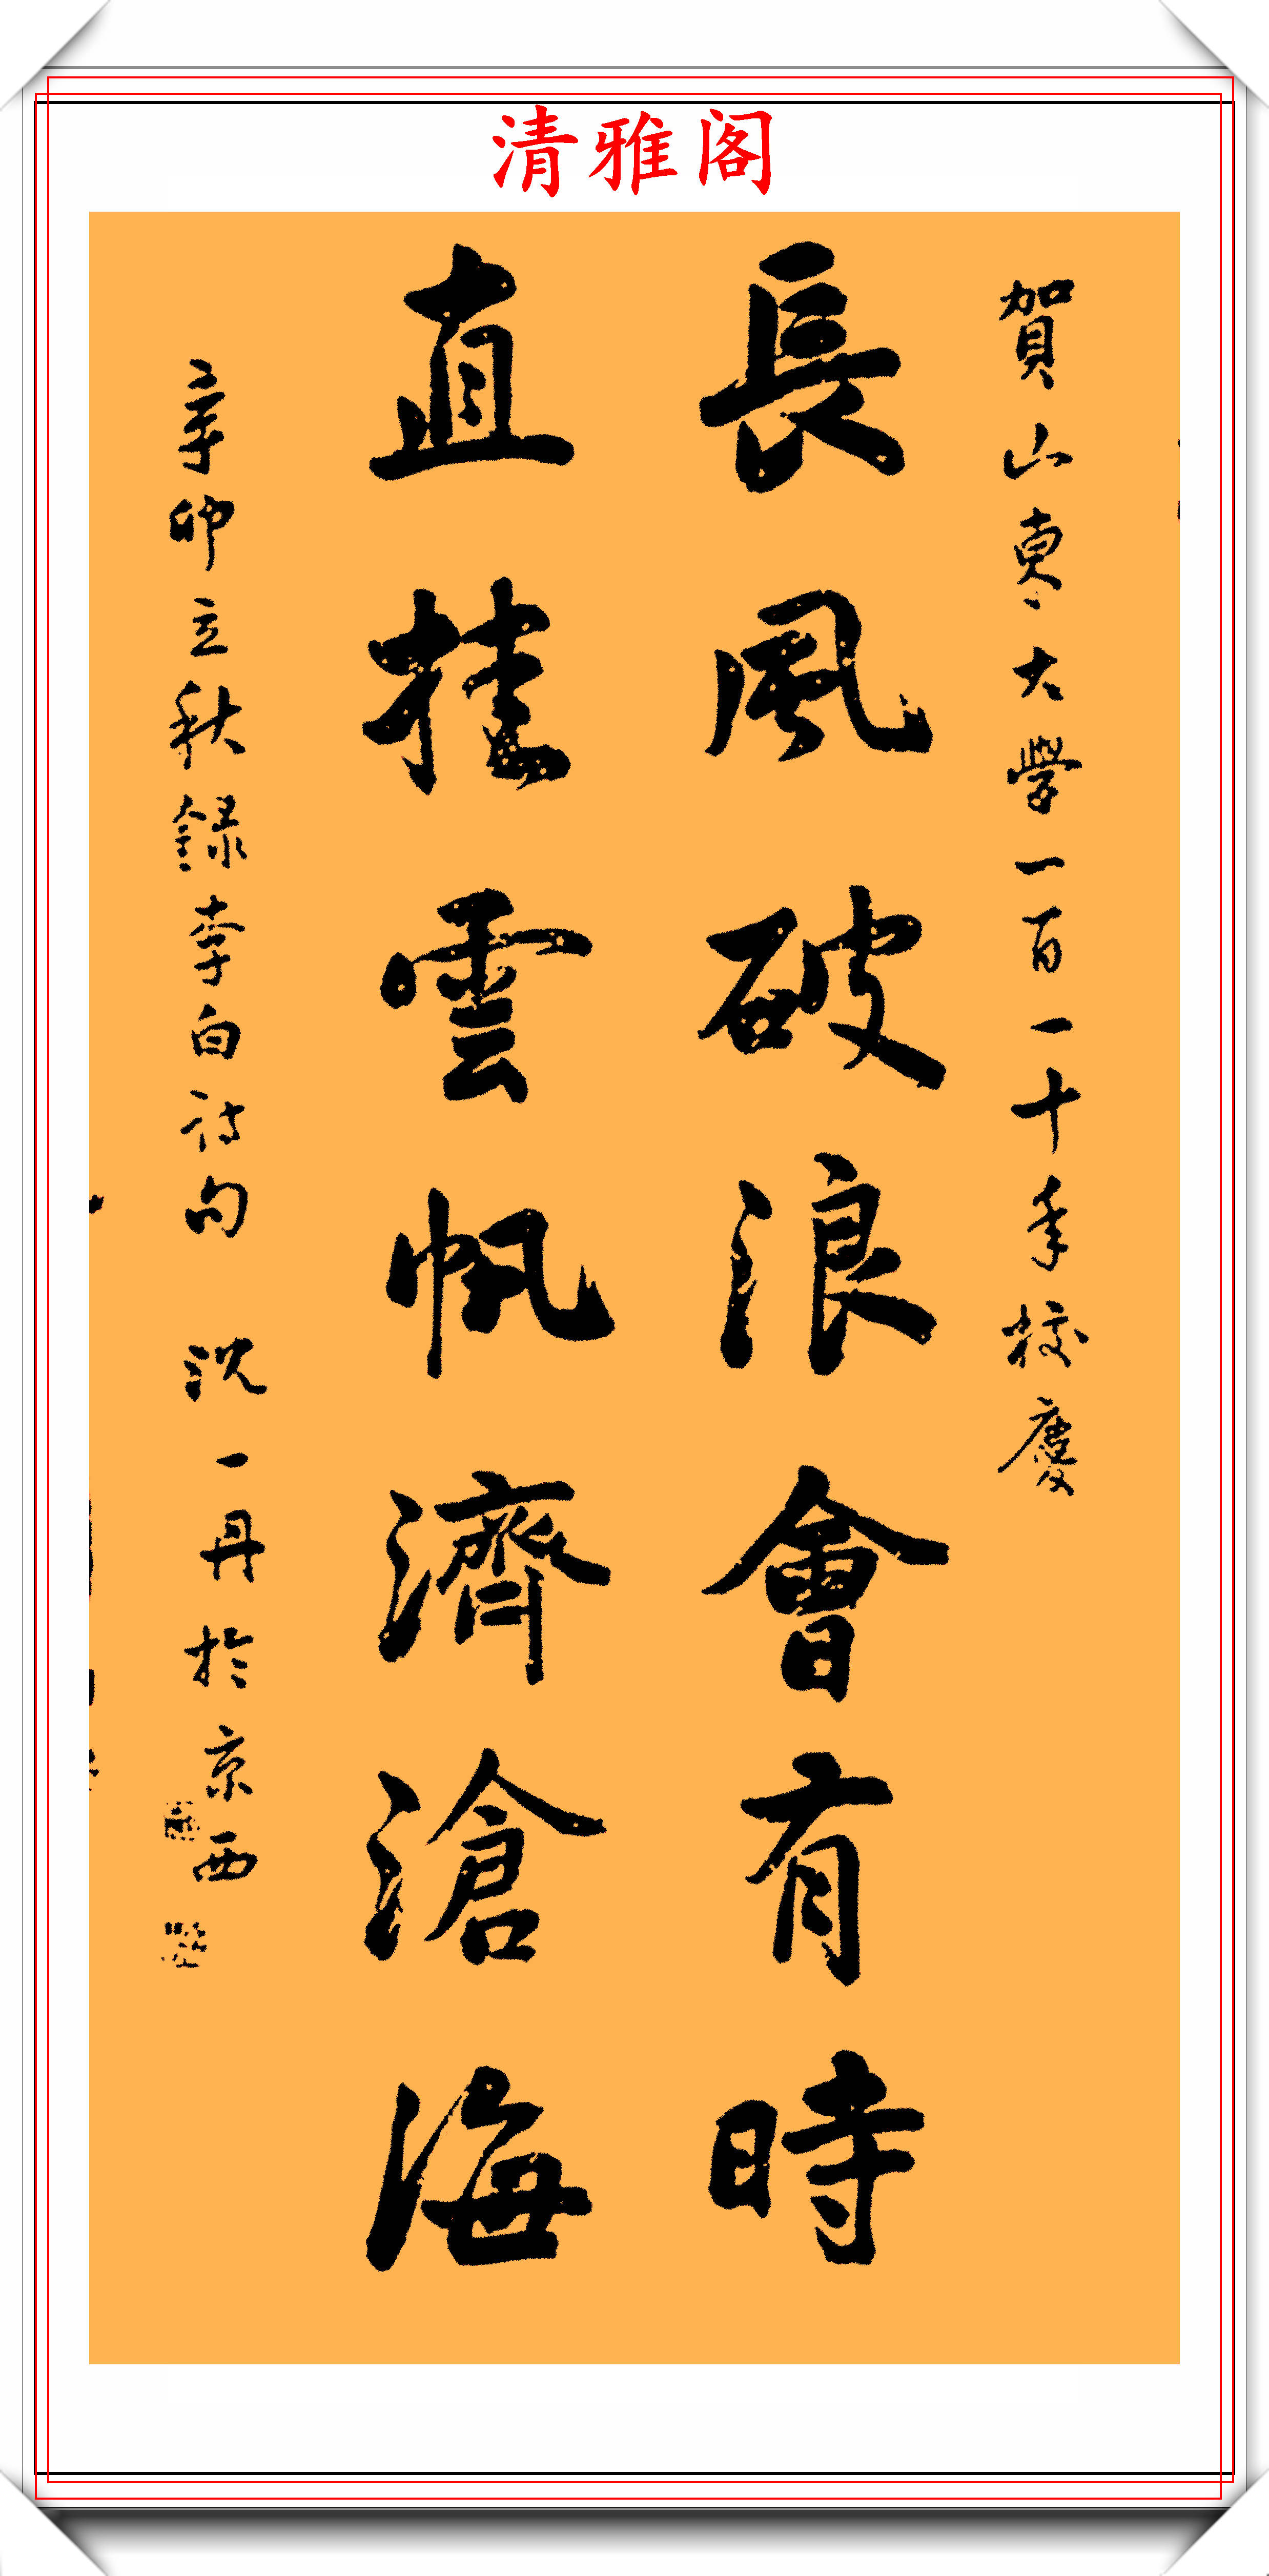 清雅阁
賀山東大學一百一十年校慶
長風破浪會有時
直挂雲帆濟滄海
辛卯立秋録李白诗句 沈一丹於京西